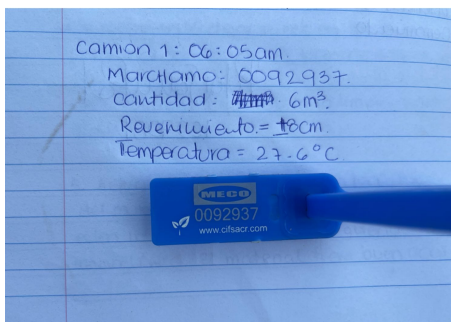 Camión 1: 06:05am.
Marchamo: 0092937.
cantidad: 6m³.
Revenimiento = 18cm.
Temperatura = 27.6°C
MECO
0092937
www.cifsacr.com